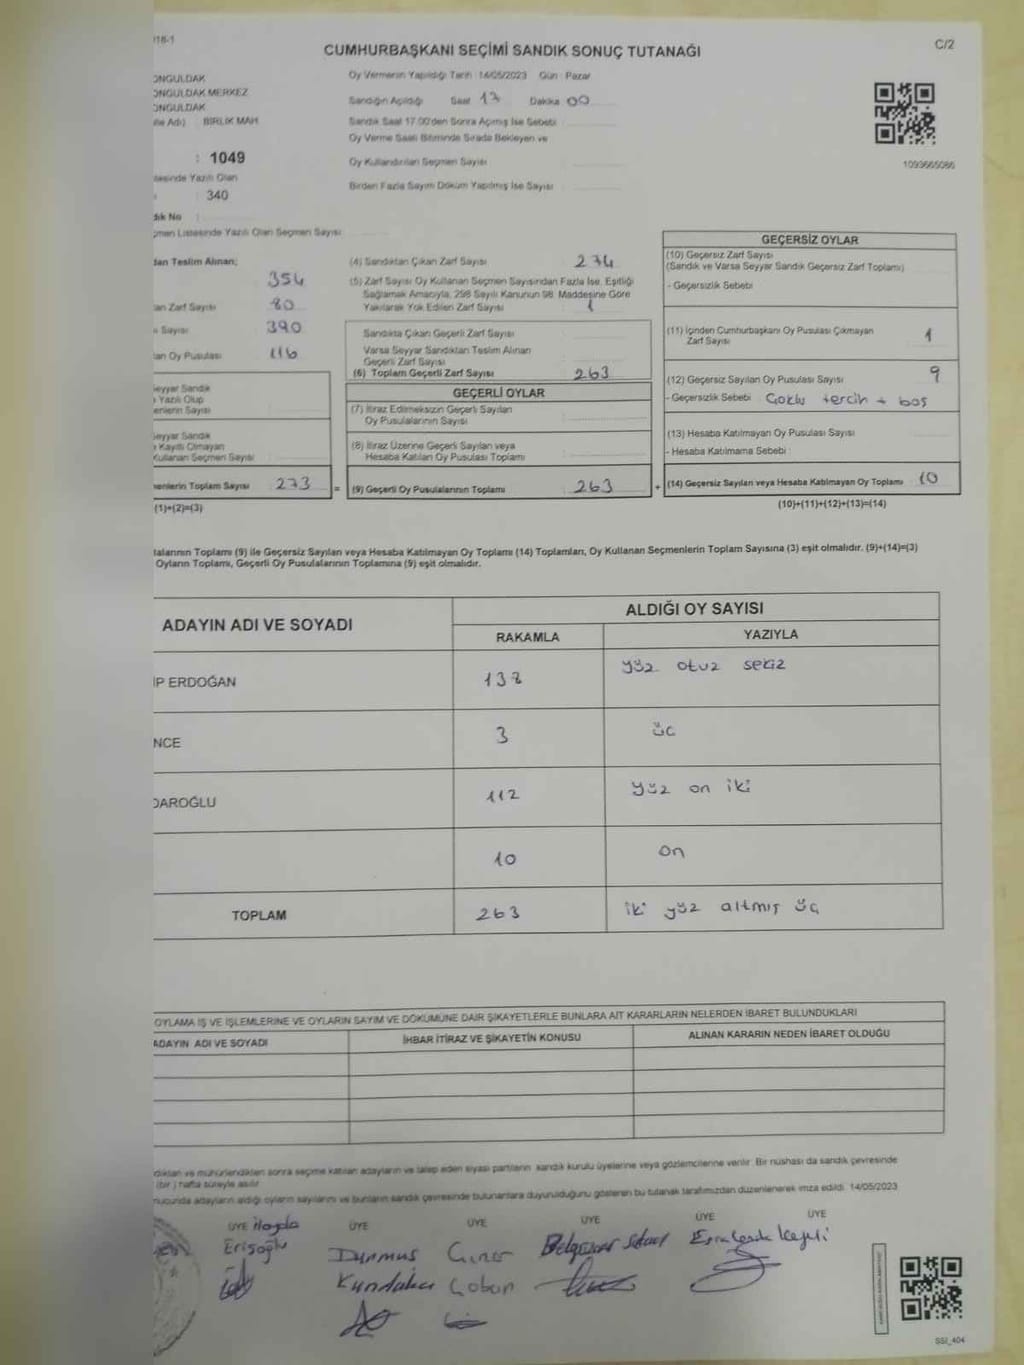 018-1
C/2
CUMHURBAŞKANI SEÇİMİ SANDIK SONUÇ TUTANAĞI
ONGULDAK
ONGULDAK MERKEZ
ONGULDAK
BİRLİK MAH.
: 1049
340
Oy Vermenin Yapıldığı Tarih : 14/05/2023 Gün : Pazar
Sandığın Açıldığı Saat 17 Dakika 00
Sandık Saat 17.00'den Sonra Açmış İse Sebebi
Oy Verme Saati Bitiminde Sırada Bekleyen ve
Oy Kullandırılan Seçmen Sayısı
Birden Fazla Sayım Döküm Yapılmış İse Sayısı
1093665086
dık No :
çmen Listesinde Yazılı Olan Seçmen Sayısı
dan Teslim Alınan;
354
an Zarf Sayısı 80
Sayısı 390
an Oy Pusulası 116
eyyar Sandık
Yazılı Olup
enlerin Sayısı
eyyar Sandık
Kayıtlı Olmayan
Kullanan Seçmen Sayısı
menlerin Toplam Sayısı 273 =
(1)+(2)=(3)
(4) Sandıktan Çıkan Zarf Sayısı 274
(5) Zarf Sayısı Oy Kullanan Seçmen Sayısından Fazla İse, Eşitliği
Sağlamak Amacıyla, 298 Sayılı Kanunun 98. Maddesine Göre
Yakılarak Yok Edilen Zarf Sayısı 1
Sandıkta Çıkan Geçerli Zarf Sayısı
Varsa Seyyar Sandıktan Teslim Alınan
Geçerli Zarf Sayısı
(6) Toplam Geçerli Zarf Sayısı 263
GEÇERLİ OYLAR
(7) İtiraz Edilmeksizin Geçerli Sayılan
Oy Pusulalarının Sayısı
(8) İtiraz Üzerine Geçerli Sayılan veya
Hesaba Katılan Oy Pusulası Toplamı
(9) Geçerli Oy Pusulalarının Toplamı 263 +
GEÇERSİZ OYLAR
(10) Geçersiz Zarf Sayısı
(Sandık ve Varsa Seyyar Sandık Geçersiz Zarf Toplamı)
- Geçersizlik Sebebi
(11) İçinden Cumhurbaşkanı Oy Pusulası Çıkmayan
Zarf Sayısı 1
(12) Geçersiz Sayılan Oy Pusulası Sayısı 9
- Geçersizlik Sebebi Çoklu tercih + boş
(13) Hesaba Katılmayan Oy Pusulası Sayısı
- Hesaba Katılmama Sebebi
(14) Geçersiz Sayılan veya Hesaba Katılmayan Oy Toplamı 10
(10)+(11)+(12)+(13)=(14)
lalarının Toplamı (9) ile Geçersiz Sayılan veya Hesaba Katılmayan Oy Toplamı (14) Toplamları, Oy Kullanan Seçmenlerin Toplam Sayısına (3) eşit olmalıdır. (9)+(14)=(3)
Oyların Toplamı, Geçerli Oy Pusulalarının Toplamına (9) eşit olmalıdır.
ADAYIN ADI VE SOYADI
ALDIĞI OY SAYISI
RAKAMLA YAZIYLA
İP ERDOĞAN 138 yüz otuz sekiz
NCE 3 üç
DAROĞLU 112 yüz on iki
10 on
TOPLAM 263 iki yüz altmış üç
OYLAMA İŞ VE İŞLEMLERİNE VE OYLARIN SAYIM VE DÖKÜMÜNE DAİR ŞİKAYETLERLE BUNLARA AİT KARARLARIN NELERDEN İBARET BULUNDUKLARI
ADAYIN ADI VE SOYADI İHBAR İTİRAZ VE ŞİKAYETİN KONUSU ALINAN KARARIN NEDEN İBARET OLDUĞU
dıktan ve mühürlendikten sonra seçime katılan adayların ve talep eden siyasi partilerin sandık kurulu üyelerine veya gözlemcilerine verilir. Bir nüshası da sandık çevresinde
(bir ) hafta süreyle asılır.
nucunda adayların aldığı oyların sayılarını ve bunların sandık çevresinde bulunanlara duyurulduğunu gösteren bu tutanak tarafımızdan düzenlenerek imza edildi. 14/05/2023
ÜYE ÜYE ÜYE ÜYE ÜYE ÜYE
Erişoğlu
Durmus
Çoban
SSİ_404